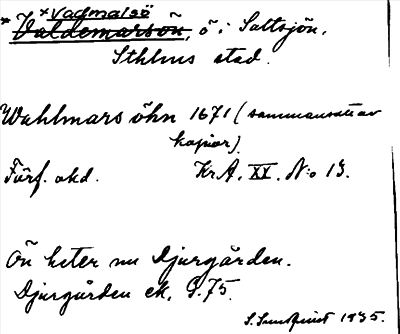 * Vadmalsö
* Valdemarsön, ö i Saltsjön.
Sthlms stad.
Wahlmars öhn 1671 (sammansatt av
kopior).
Förf. okd. Kr.A. XX. No 13.
Ön heter nu Djurgården.
Djurgården ek. G.75.
S. Sundquist 1935.